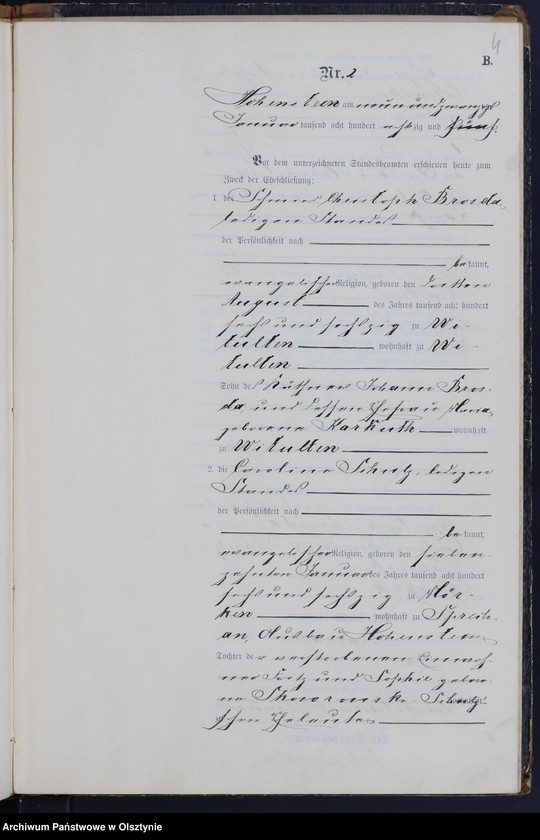 4
B.
Nr. 2
Hohenstein am neun und zwanzigsten
Januar tausend acht hundert achtzig und fünf.
Vor dem unterzeichneten Standesbeamten erschienen heute zum
Zweck der Eheschließung:
1. der Christoph Brosda,
ledigen Standes
der Persönlichkeit nach
be kannt,
evangelischer Religion, geboren den dritten
August des Jahres tausend acht hundert
sechs und sechszig zu Wi-
tulten wohnhaft zu Wi-
tulten
Sohn des Käthner Johann Bros-
da und dessen Ehefrau
geborene Karkuth wohnhaft
zu Witulten
2. die Caroline Schulz, ledigen
Standes
der Persönlichkeit nach
be kannt,
evangelischer Religion, geboren den sieben-
zehnten Januar des Jahres tausend acht hundert
sechs und sechszig zu Mör-
ken, wohnhaft zu
Ausbau Hohenstein
Tochter der verstorbenen Einwoh-
ner Fritz und Sophie gebor-
ne Schulz-
schen Eheleute
Archiwum Państwowe w Olsztynie